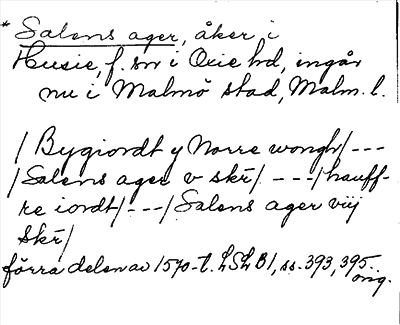 * Salens ager, åker i
Husie, f. sn i Oxie hd, ingår
nu i Malmö stad, Malm. l.
/ Bygiordt y Norre wongh/ ---
/Salens ager v skr/ - --/hauff-
re iordt/---/Salens ager viij
Skr/
förra delen av 1570-t. LSLB1, ss. 393, 395.
orig.